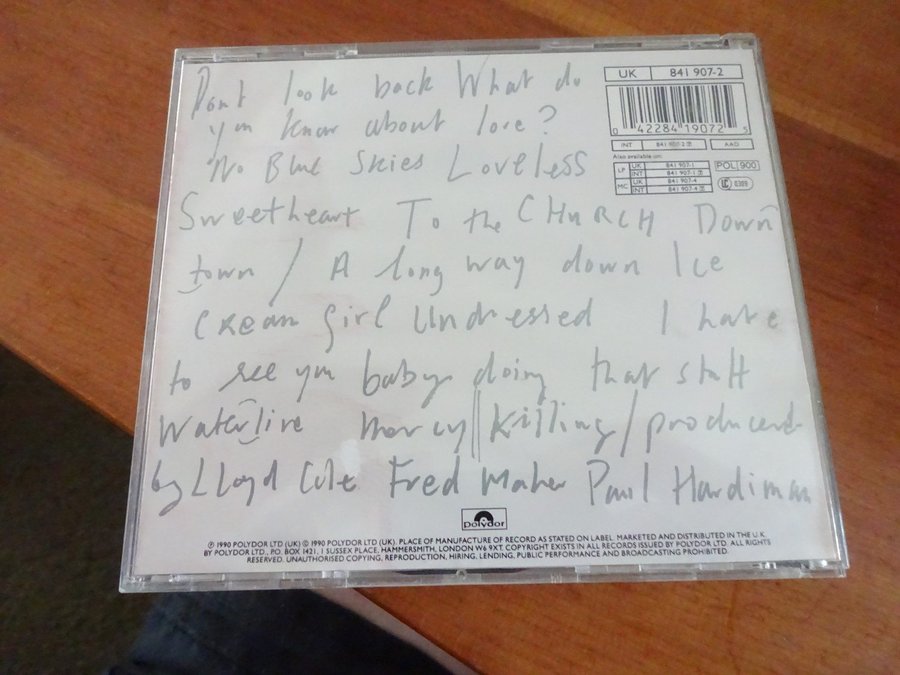 Dont look back What do
you know about love?
No Blue Skies Loveless
Sweetheart To the CHURCH Down
town / A long way down Ice
Cream Girl Undressed I hate
to see you baby doing that stuff
Waterline Mercy Killing / produced
by Lloyd Cole Fred Maher Paul Hardiman
UK 841 907-2
0 42284 19072 5
INT 841 907-2 AAD
Also available on:
LP UK 841 907-1
INT 841 907-1
MC UK 841 907-4
INT 841 907-4
POL 900
LC 0309
polydor
℗ 1990 POLYDOR LTD (UK) © 1990 POLYDOR LTD (UK). PLACE OF MANUFACTURE OF RECORD AS STATED ON LABEL. MARKETED AND DISTRIBUTED IN THE U.K.
BY POLYDOR LTD., P.O. BOX 1421, 1 SUSSEX PLACE, HAMMERSMITH, LONDON W6 9XT. COPYRIGHT EXISTS IN ALL RECORDS ISSUED BY POLYDOR LTD. ALL RIGHTS
RESERVED. UNAUTHORISED COPYING, REPRODUCTION, HIRING, LENDING, PUBLIC PERFORMANCE AND BROADCASTING PROHIBITED.